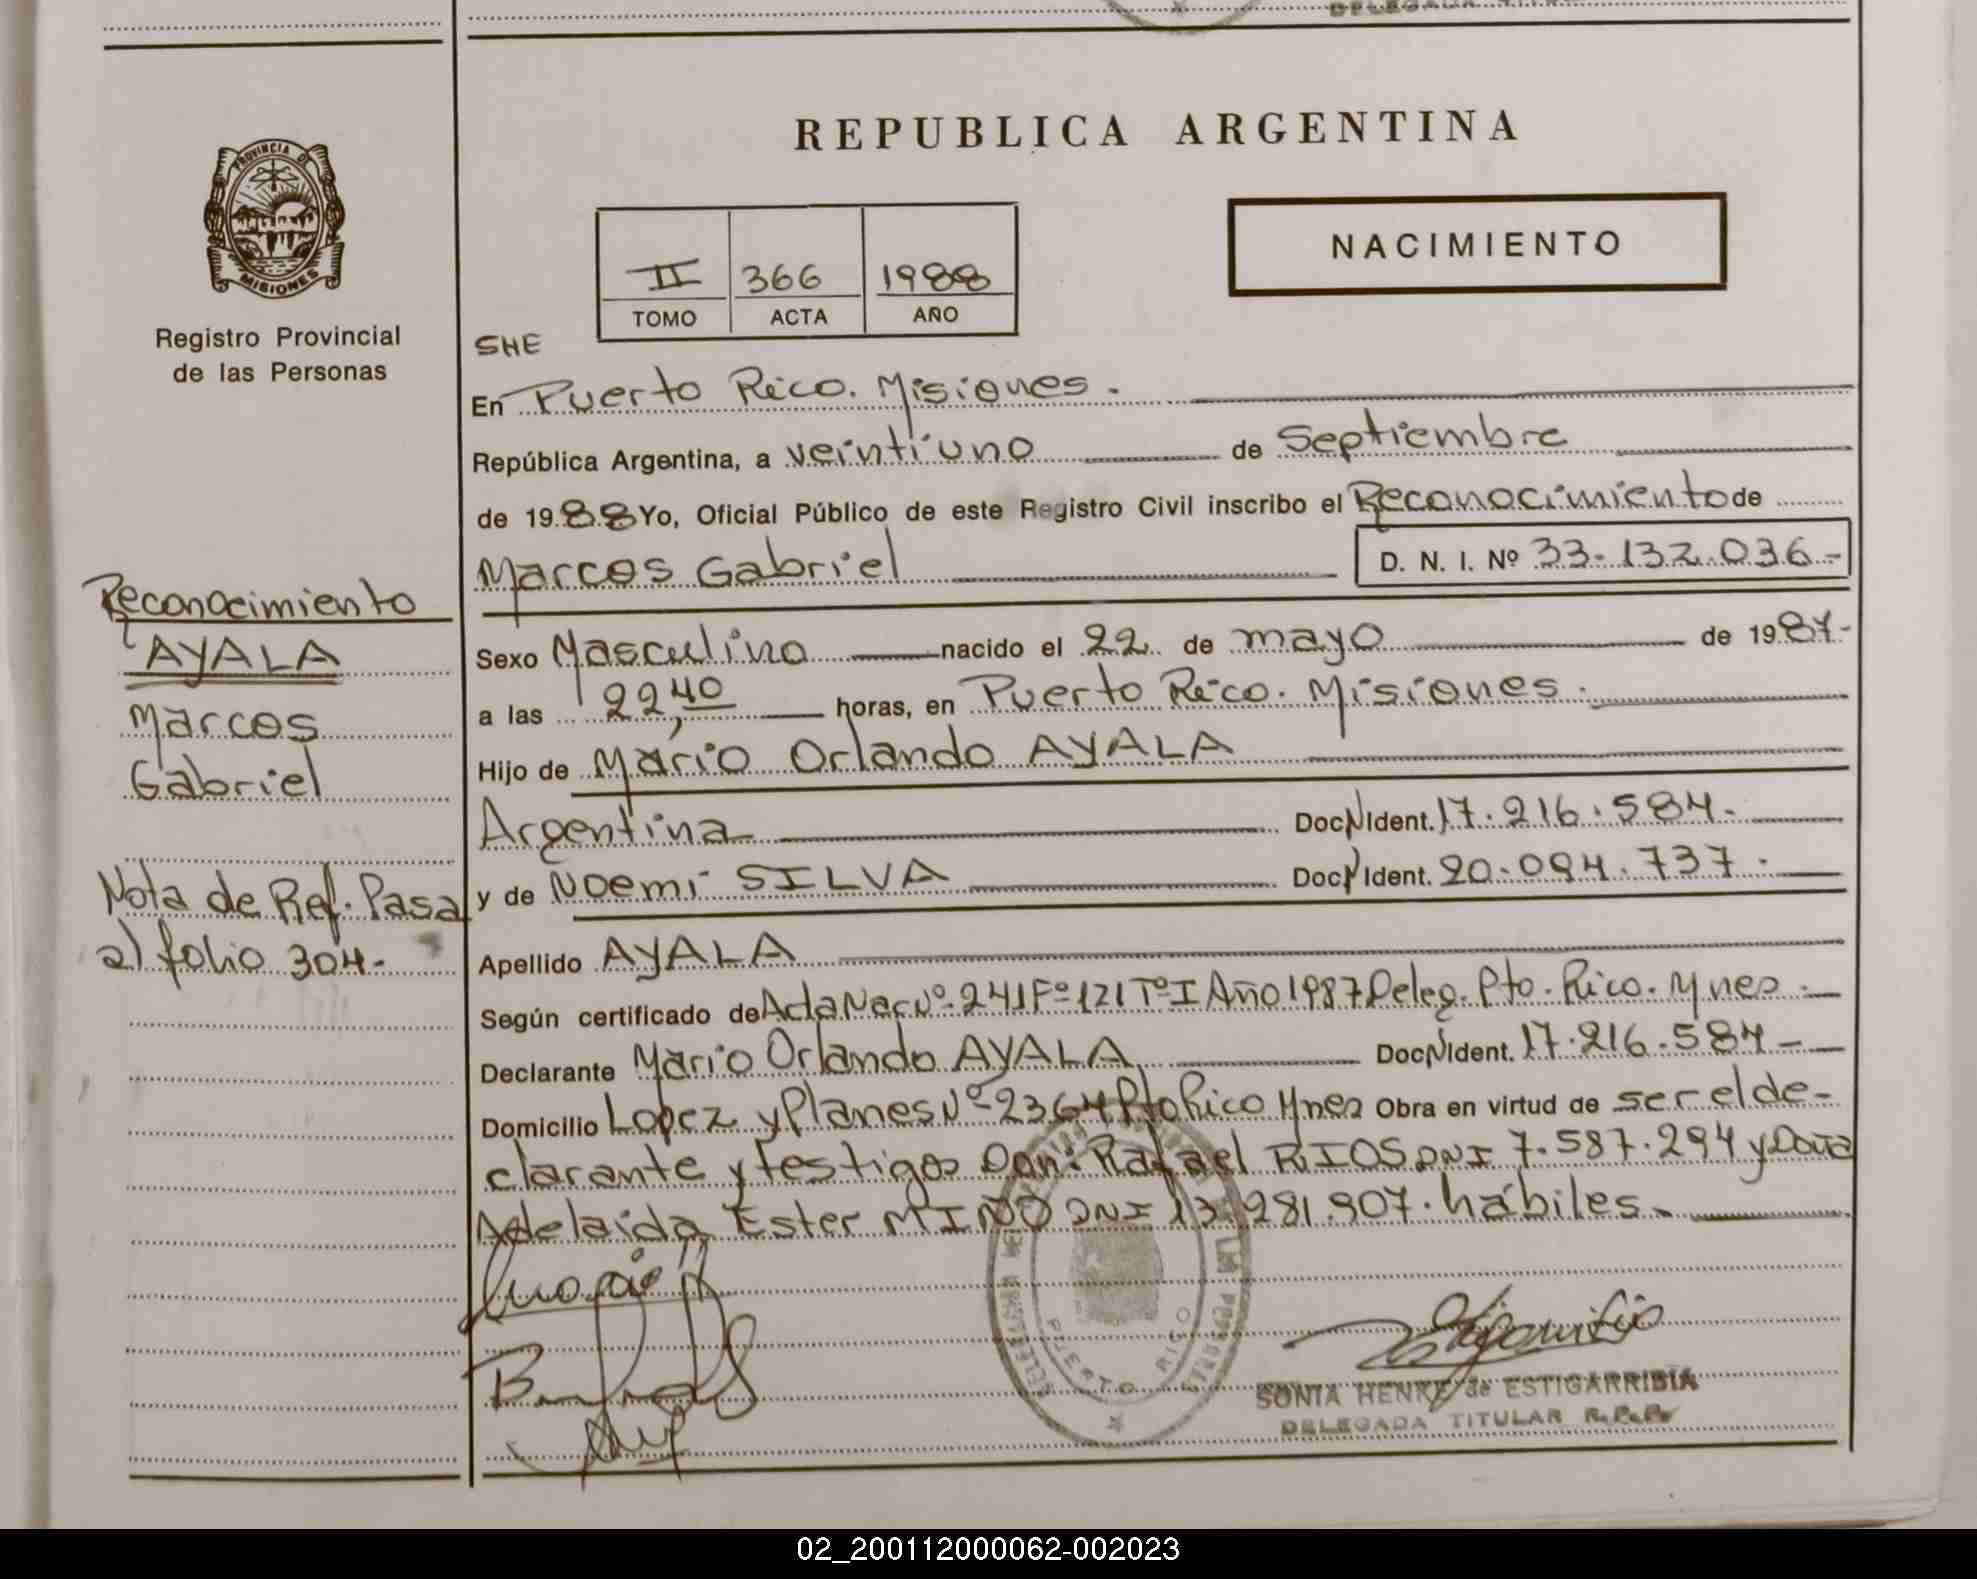 REPUBLICA ARGENTINA
PROVINCIA DE
MISIONES
Registro Provincial
de las Personas
NACIMIENTO
II 366 1988
TOMO ACTA AÑO
SHE
En Puerto Rico. Misiones.
República Argentina, a veintiuno de Septiembre
de 1988 Yo, Oficial Público de este Registro Civil inscribo el Reconocimiento de
Marcos Gabriel D. N. I. Nº 33.132.036.-
Reconocimiento
AYALA
Marcos
Gabriel
Nota de Ref. Pasa
al folio 304.-
Sexo Masculino nacido el 22 de mayo de 1987-
a las 22,40 horas, en Puerto Rico. Misiones.
Hijo de Mario Orlando AYALA
Argentina DocNIdent. 17.216.584.
y de Noemi SILVA DocNIdent. 20.094.737.
Apellido AYALA
Según certificado de Acta Nac Nº 241 Fº 121 Tº I Año 1987 Deleg. Pto. Rico. Mnes.
Declarante Mario Orlando AYALA DocNIdent. 17.216.584-
Domicilio Lopez y Planes Nº 2364 Pto Rico Mnes Obra en virtud de ser el de-
clarante y testigos Don: Rafael RIOS DNI 7.587.294 y Doña
Adelaida Ester MIÑO DNI 13.281.907. hábiles.
PUERTO RICO
SONIA HENKE de ESTIGARRIBIA
DELEGADA TITULAR R.P.P.
02_200112000062-002023